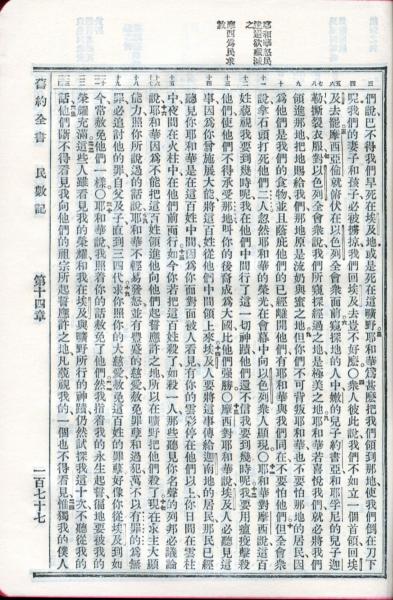 耶和華怒民
悖逆欲殲滅
之
摩西爲民求
赦
們說巴不得我們早死在埃及地或是死在這曠野耶和華爲甚麼把我們領到那地使我們倒在刀下
呢我們的妻子和孩子必被擄掠我們回埃及去豈不好麼○衆人彼此說我們不如立一個首領回埃
及去罷摩西亞倫就俯伏在以色列全會衆面前窺探地的人中嫩的兒子約書亞和耶孚尼的兒子迦
勒撕裂衣服對以色列全會衆說我們所窺探經過之地是極美之地耶和華若喜悅我們就必將我們
領進那地把地賜給我們那地原是流奶與蜜之地但你們不可背叛耶和華也不要怕那地的居民因
爲他們是我們的食物並且蔭庇他們的已經離開他們有耶和華與我們同在不要怕他們但全會衆
說拿石頭打死他們二人忽然耶和華的榮光在會幕中向以色列衆人顯現○耶和華對摩西說這百
姓藐視我要到幾時呢我在他們中間行了這一切神蹟他們還不信我要到幾時呢我要用瘟疫擊殺
他們使他們不得承受那地叫你的後裔成爲大國比他們強勝○摩西對耶和華說埃及人必聽見這
事因爲你曾施展大能將這百姓從他們中間領上來埃及人要將這事傳給迦南地的居民那民已經
聽見你耶和華是在這百姓中間因爲你面對面被人看見有你的雲彩停在他們以上你日間在雲柱
中夜間在火柱中在他們前面行如今你若把這百姓殺了如殺一人那些聽見你名聲的列邦必議論
說耶和華因爲不能把這百姓領進他向他們起誓應許之地所以在曠野把他們殺了現在求主大顯
能力照你所說過的話說耶和華不輕易發怒並有豐盛的慈愛赦免罪孽和過犯萬不以有罪的爲無
罪必追討他的罪自父及子直到三四代求你照你的大慈愛赦免這百姓的罪孽好像你從埃及到如
今常赦免他們一樣○耶和華說我照着你的話赦免了他們然我指着我的永生起誓遍地要被我的
榮耀充滿這些人雖看見我的榮耀和我在埃及與曠野所行的神蹟仍然試探我這十次不聽從我的
話他們斷不得看見我向他們的祖宗所起誓應許之地凡藐視我的一個也不得看見惟獨我的僕人
舊約全書 民數記 第十四章 一百七十七